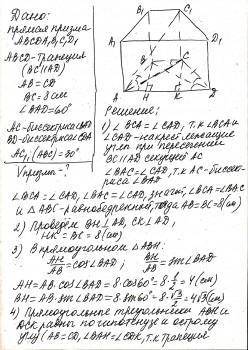 Дано:
прямая призма
ABCDA₁B₁C₁D₁
ABCD-трапеция
(BC||AD)
AB=CD
BC=8 см
∠BAD=60°
AC-биссектриса ∠BAD
BD-биссектриса ∠CDA
AC₁,(ABC)=30°
Vпризма-?
B₁ C₁
A₁ D₁
B C
A H K D
Решение:
1) ∠BCA=∠CAD, т.к ∠BCA и
∠CAD-накрест лежащие
углы при пересечении
BC||AD секущей AC
∠BAC=∠CAD, т.к AC-биссект-
риса ∠BAD
∠BCA=∠CAD, ∠BAC=∠CAD, значит, ∠BCA=∠BAC
и △ABC-равнобедренный, тогда AB=BC=8(см)
2) Проведём BH⊥AD, CK⊥AD,
HK=BC=8(см)
3) В прямоугольном △ABH:
AH/AB=cos∠BAD; BH/AB=sin∠BAD
AH=AB·cos∠BAD=8·cos60°=8·1/2=4(см)
BH=AB·sin∠BAD=8·sin60°=8·√3/2=4√3(см)
4) Прямоугольные треугольники ABH и
DCK равны по гипотенузе и острому
углу (AB=CD, ∠BAH=∠CDK, т.к трапеция